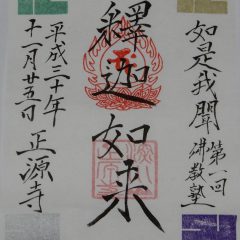 如是我聞 第一回
佛教塾
釋迦如来
平成三十年
十一月廿五日 正源寺